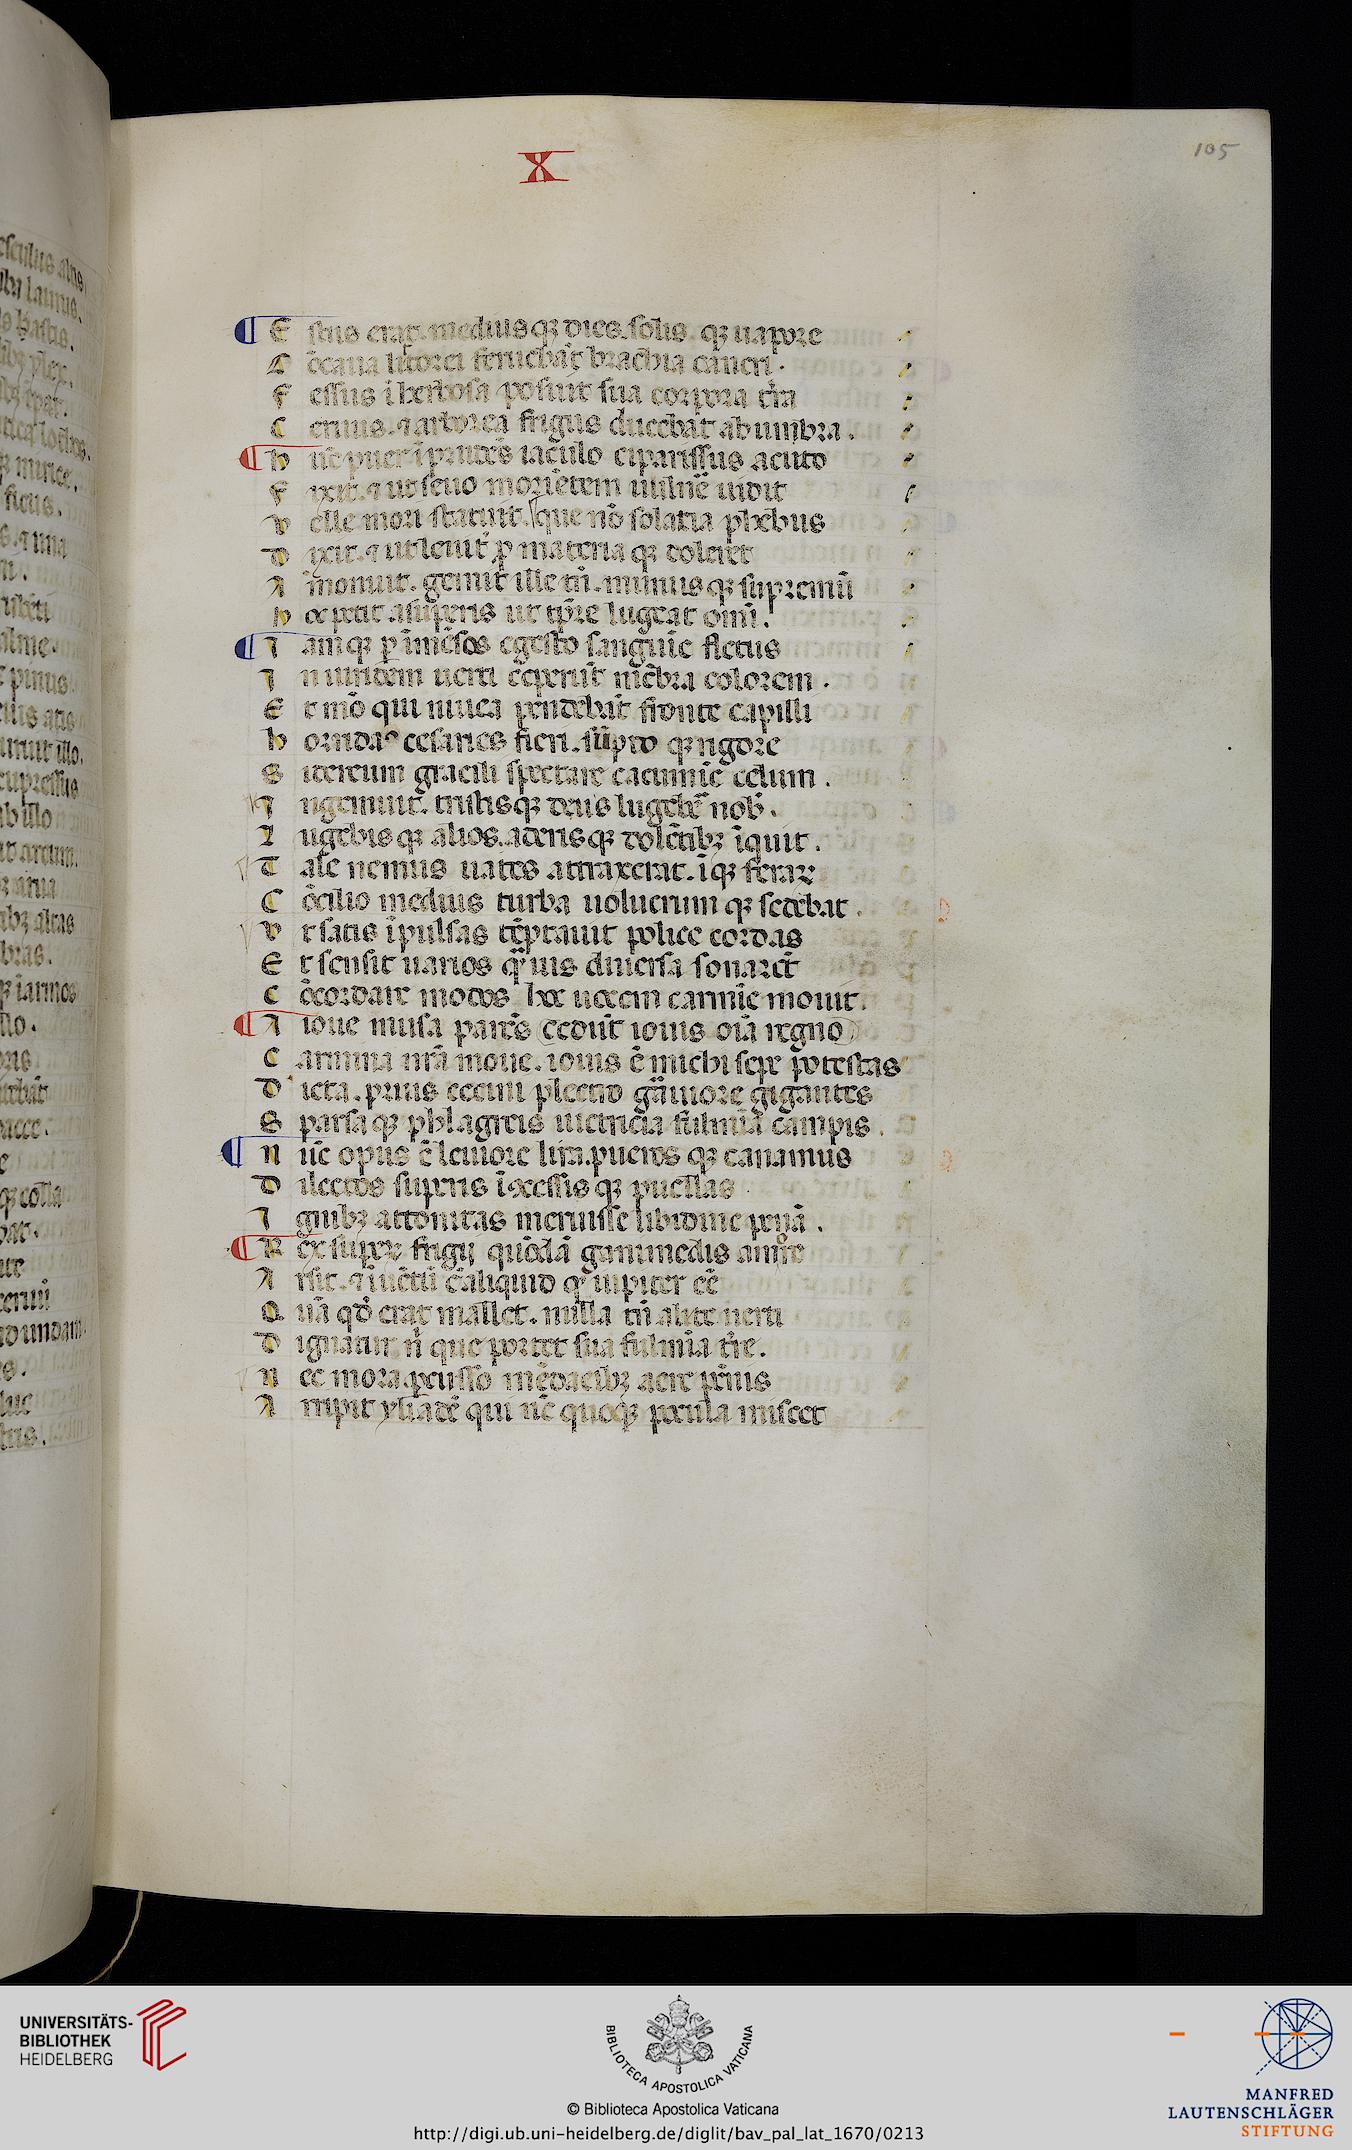 X
105
E stus erat. medius qȝ dies. solis qȝ uapore
C ōcaua litorei feruebāt brachia cancri.
F essus ī herbosa posuit sua corpora t̄ra
C eruus. ⁊ arborea frigus ducebat ab umbra.
h ūc puer īprudēs iaculo ciparissus acuto
F ixit. ⁊ ut seuo moriētem uulnē uidit
V elle mori statuit. que nō solatia phebus
D ixit. ⁊ ut leuit̄ ꝑ materia qȝ doleret
A monuit. gemit ille tn̄. munus qȝ supremū
h oc petit a suꝑis ut tp̄re lugeat omī.
I amqȝ ꝑ īmēsos egesto sanguīe fletus
I n uiridem uerti cēperūt mēbra colorem.
E t mō qui niuea pendebāt fronte capilli
h orrida cesaries fieri. sūpto qȝ rigore
S idereum gracili spectare cacumīe celum.
I ngemuit. tristisqȝ deus lugebē nob̄.
L ugebisqȝ alios. aderisqȝ dolētibȝ īquit.
T ale nemus uates attraxerat. īqȝ feraꝝ
C ōcilio medius turba uolucrum qȝ sedebat.
V t satis īpulsas tēptauit police cordas
E t sensit uarios qᵃuis diuersa sonarēt
C ōcordare modos hoc uocem carmīe mouit.
A ioue musa parēs cedūt iouis oīa regno
C armina nrā moue. iouis ē michi sepe potestas
D icta. prius cecini plectro gᵃuiore gigantes
S parsaqȝ phlagreis uictricia fulmīa campis.
N ūc opus ē leuiore lira. pueros qȝ canamus
D ilectos supris ī9cessis qȝ puellas
I gnibȝ attonitas meruisse libidine penā.
R ex supeꝝ frigij quōdā ganimedis amore
A rsit. ⁊ īuētū ē aliquid qᵈ iupiter eē
Q uā qd̄ erat mallet. nulla tn̄ alite uerti
D ignatur n̄ que portet sua fulmīa t̄re.
N ec mora. pcusso mēdacibȝ aere pēnis
A rripit yliadē qui nūc quoqȝ pocula miscet
UNIVERSITÄTS-
BIBLIOTHEK
HEIDELBERG
BIBLIOTECA APOSTOLICA VATICANA
© Biblioteca Apostolica Vaticana
http://digi.ub.uni-heidelberg.de/diglit/bav_pal_lat_1670/0213
MANFRED
LAUTENSCHLÄGER
STIFTUNG